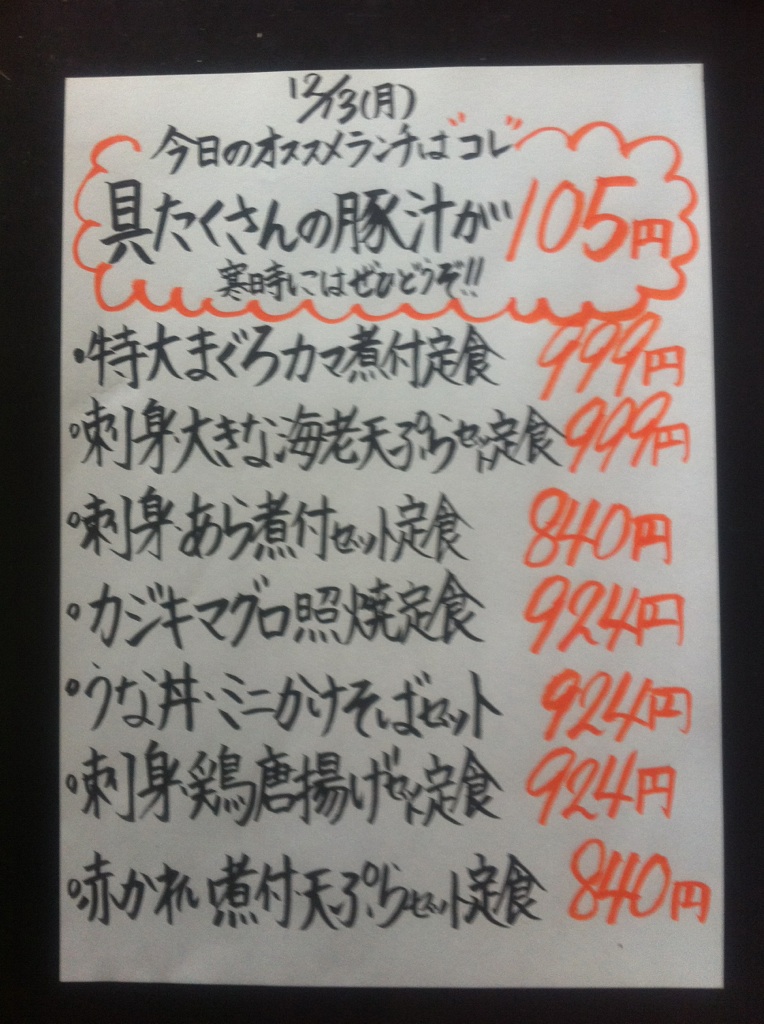 12/13(月)
今日のオススメランチは"コレ"
具たくさんの豚汁が105円
寒時にはぜひどうぞ!!
・特大まぐろカマ煮付定食 999円
・刺身・大きな海老天ぷらセット定食 999円
・刺身・あら煮付セット定食 840円
・カジキマグロ照焼定食 924円
・うな丼・ミニかけそばセット 924円
・刺身・鶏唐揚げセット定食 924円
・赤かれい煮付・天ぷらセット定食 840円